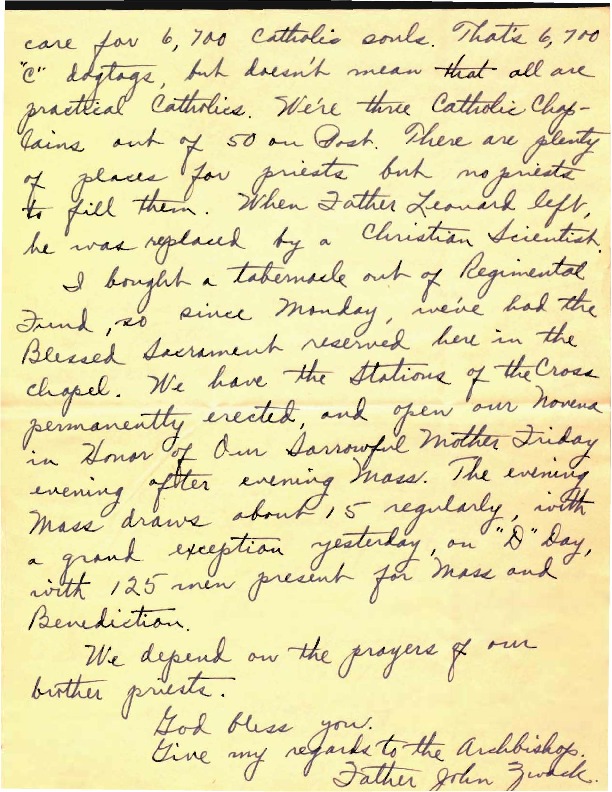 care for 6,700 Catholic souls. That's 6,700
"C" dogtags, but doesn't mean that all are
practical Catholics. We're three Catholic Chap-
lains out of 50 on Post. There are plenty
of places for priests but no priests
to fill them. When Father Leonard left,
he was replaced by a Christian Scientist.
I bought a tabernacle out of Regimental
Fund, so since Monday, we've had the
Blessed Sacrament reserved here in the
chapel. We have the Stations of the Cross
permanently erected, and open our Novena
in Honor of Our Sorrowful Mother Friday
evening after evening Mass. The evening
Mass draws about 15 regularly, with
a grand exception yesterday, on "D" Day,
with 125 men present for Mass and
Benediction.
We depend on the prayers of our
brother priests.
God bless you.
Give my regards to the Archbishop.
Father John Zwack.